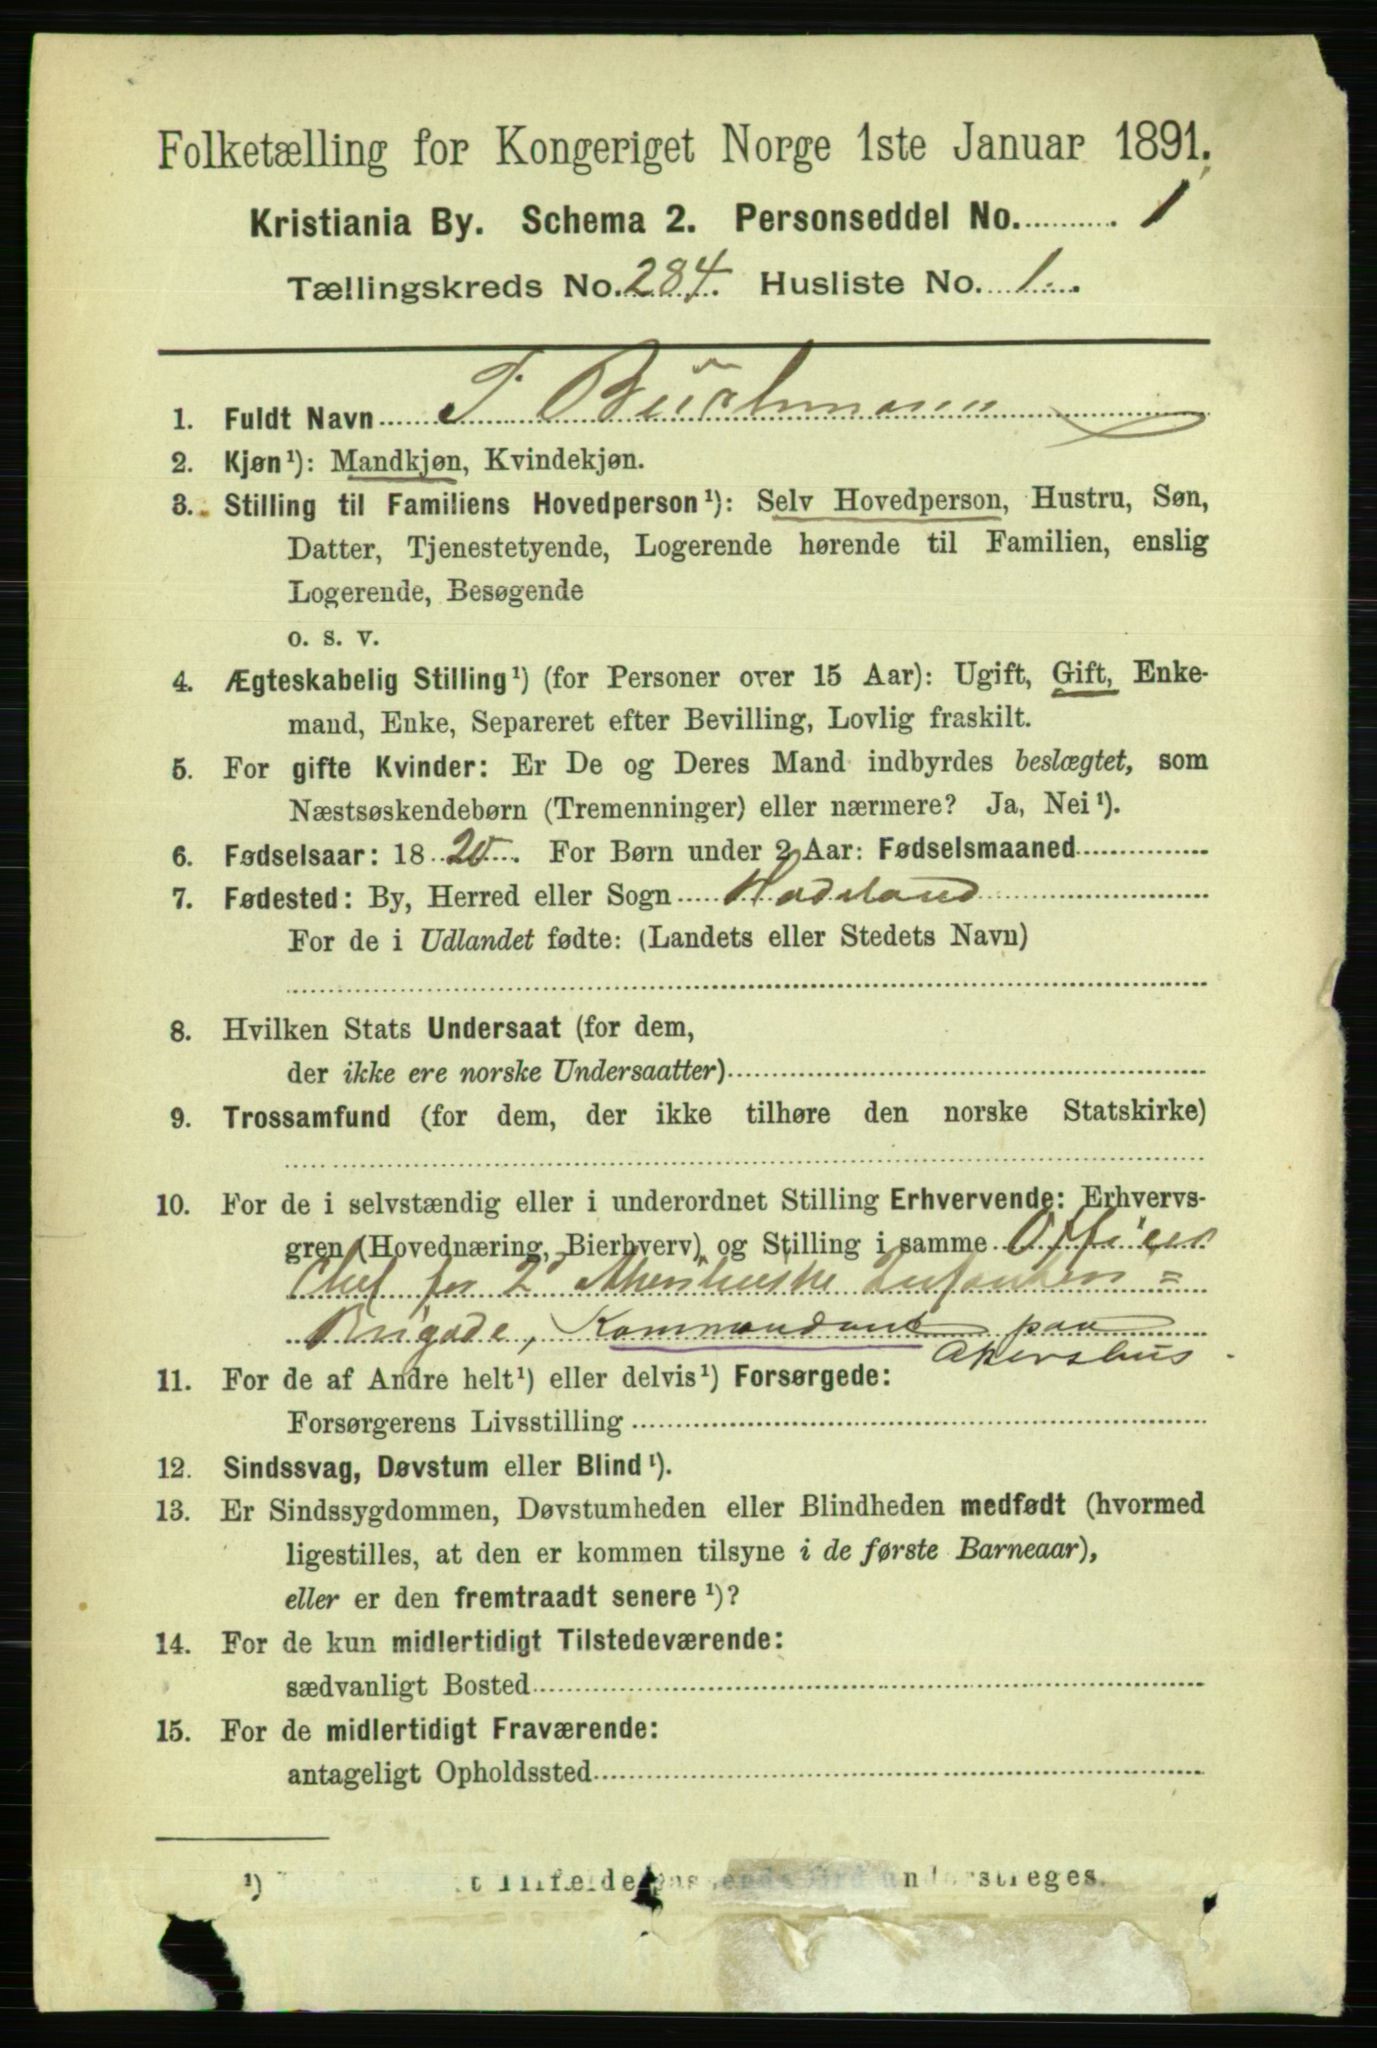 Folketælling for Kongeriget Norge 1ste Januar 1891.
Kristiania By. Schema 2. Personseddel No. 1
Tællingskreds No. 284. Husliste No. 1.
1. Fuldt Navn
2. Kjøn¹): Mandkjøn, Kvindekjøn.
3. Stilling til Familiens Hovedperson¹): Selv Hovedperson, Hustru, Søn,
Datter, Tjenestetyende, Logerende hørende til Familien, enslig
Logerende, Besøgende
o. s. v.
4. Ægteskabelig Stilling¹) (for Personer over 15 Aar): Ugift, Gift, Enke-
mand, Enke, Separeret efter Bevilling, Lovlig fraskilt.
5. For gifte Kvinder: Er De og Deres Mand indbyrdes beslægtet, som
Næstsøskendebørn (Tremenninger) eller nærmere? Ja, Nei¹).
6. Fødselsaar: 1820. For Børn under 2 Aar: Fødselsmaaned
7. Fødested: By, Herred eller Sogn Hadeland
For de i Udlandet fødte: (Landets eller Stedets Navn)
8. Hvilken Stats Undersaat (for dem,
der ikke ere norske Undersaatter)
9. Trossamfund (for dem, der ikke tilhøre den norske Statskirke)
10. For de i selvstændig eller i underordnet Stilling Erhvervende: Erhvervs-
gren (Hovednæring, Bierhverv) og Stilling i samme Officer
Chef for 2 Akershuske Infanteri=
Brigade, Kommandant paa
Akershus.
11. For de af Andre helt¹) eller delvis¹) Forsørgede:
Forsørgerens Livsstilling
12. Sindssvag, Døvstum eller Blind¹).
13. Er Sindssygdommen, Døvstumheden eller Blindheden medfødt (hvormed
ligestilles, at den er kommen tilsyne i de første Barneaar),
eller er den fremtraadt senere¹)?
14. For de kun midlertidigt Tilstedeværende:
sædvanligt Bosted
15. For de midlertidigt Fraværende:
antageligt Opholdssted
¹) t Tilfælde passende Ord understreges.